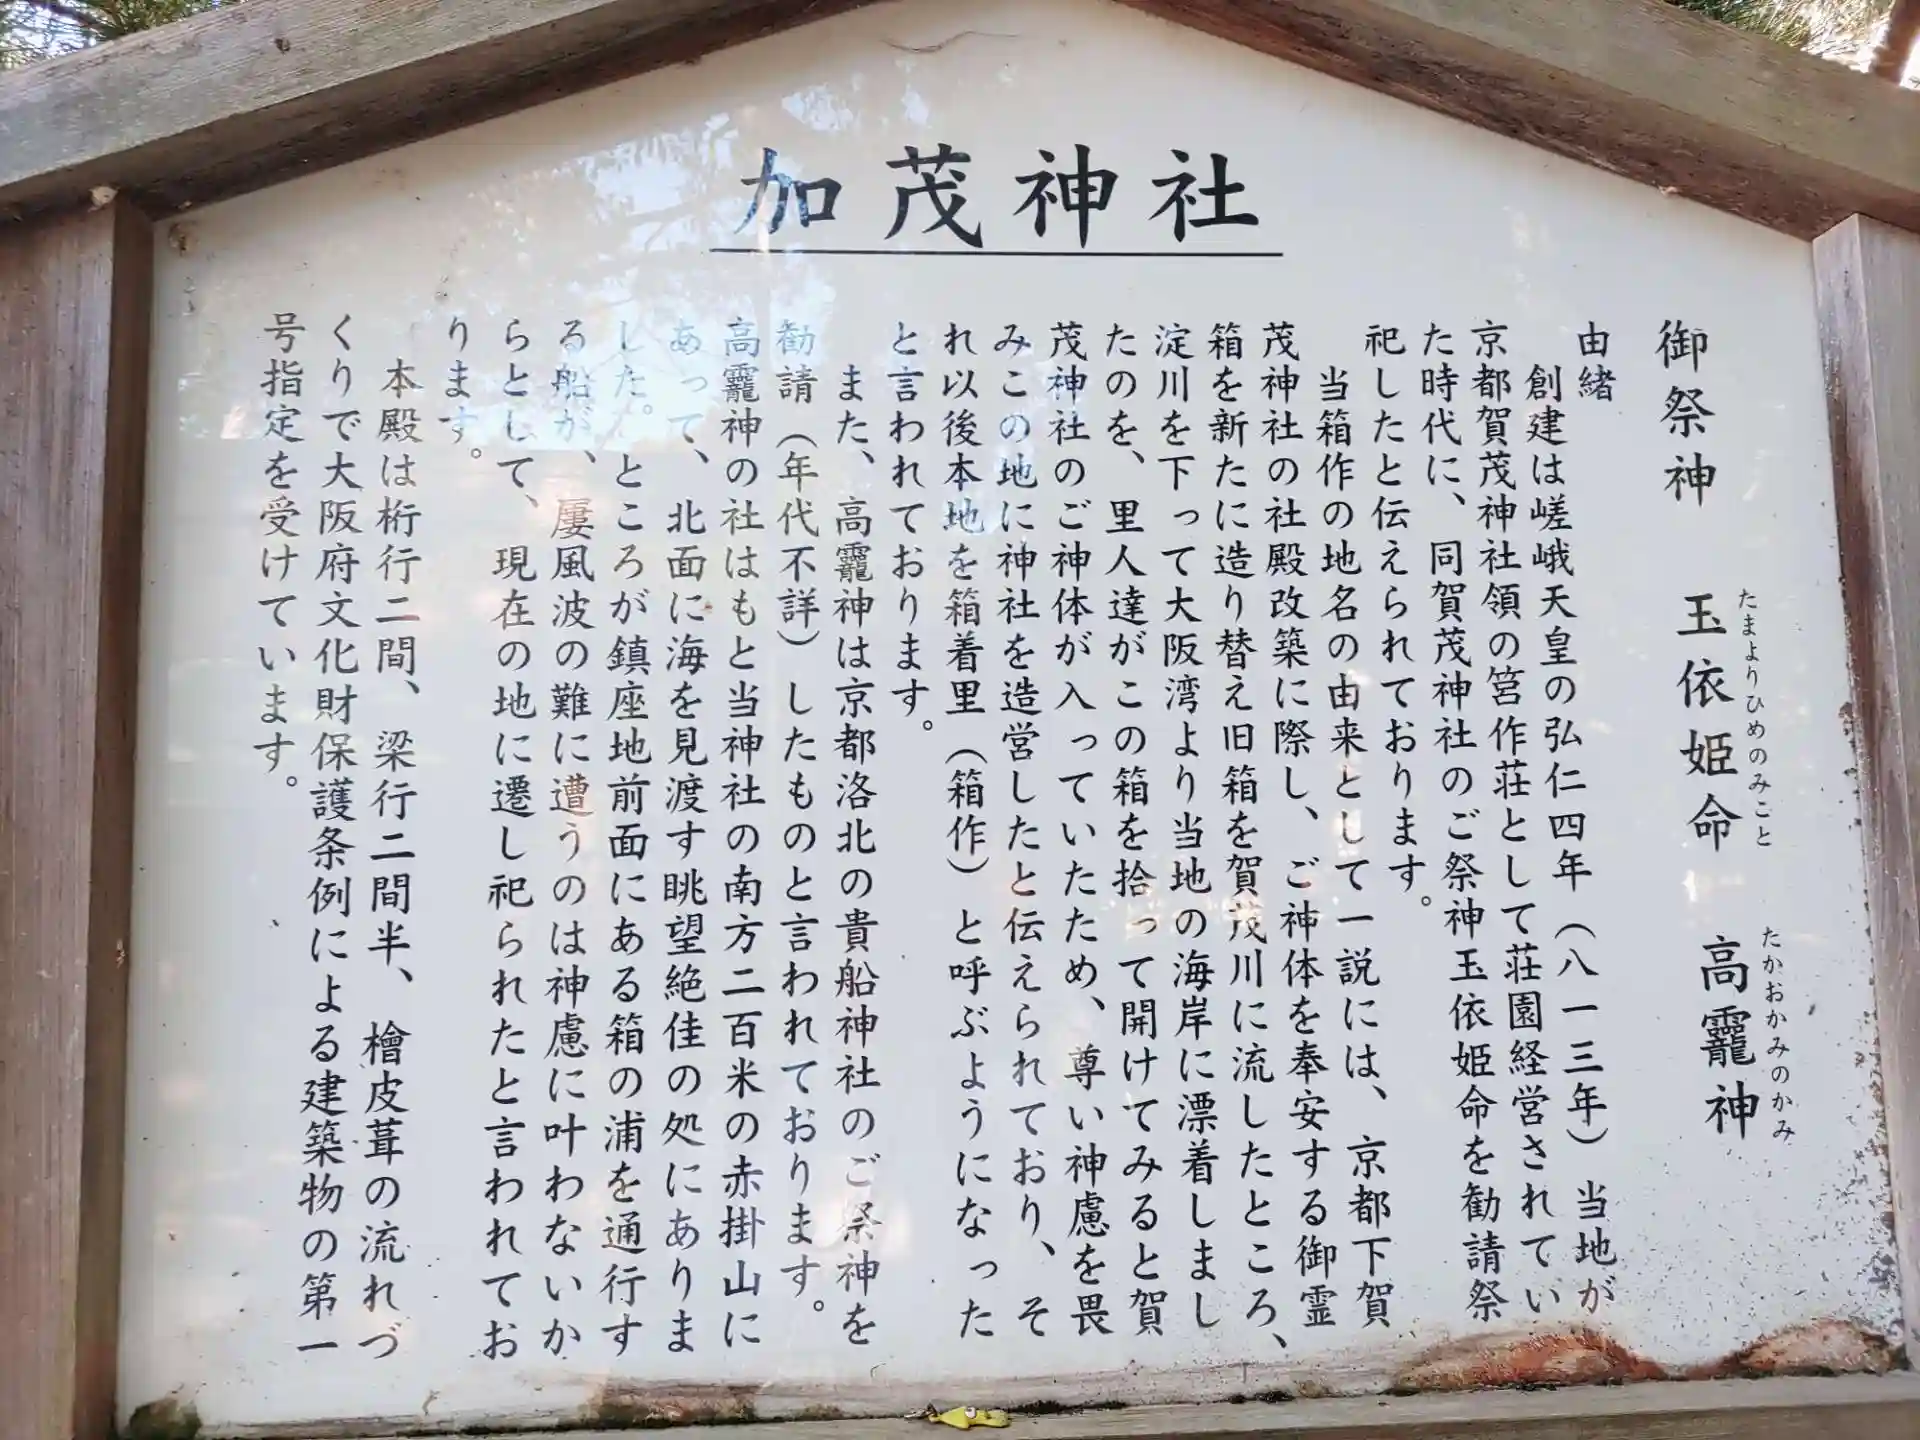 加茂神社
御祭神　玉依姫命　高龗神
たまよりひめのみこと
たかおかみのかみ
由緒
創建は嵯峨天皇の弘仁四年（八一三年）当地が
京都賀茂神社領の筥作荘として荘園経営されてい
た時代に、同賀茂神社のご祭神玉依姫命を勧請祭
祀したと伝えられております。
当箱作の地名の由来として一説には、京都下賀
茂神社の社殿改築に際し、ご神体を奉安する御霊
箱を新たに造り替え旧箱を賀茂川に流したところ、
淀川を下って大阪湾より当地の海岸に漂着しまし
たのを、里人達がこの箱を拾って開けてみると賀
茂神社のご神体が入っていたため、尊い神慮を畏
みこの地に神社を造営したと伝えられており、そ
れ以後本地を箱着里（箱作）と呼ぶようになった
と言われております。
また、高龗神は京都洛北の貴船神社のご祭神を
勧請（年代不詳）したものと言われております。
高龗神の社はもと当神社の南方二百米の赤掛山に
あって、北面に海を見渡す眺望絶佳の処にありま
した。ところが鎮座地前面にある箱の浦を通行す
る船が、屡風波の難に遭うのは神慮に叶わないか
らとして、現在の地に遷し祀られたと言われてお
ります。
本殿は桁行二間、梁行二間半、檜皮葺の流れづ
くりで大阪府文化財保護条例による建築物の第一
号指定を受けています。